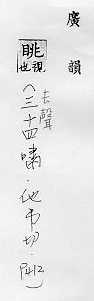 廣韻
眺
視也
去聲
(三十四嘯·他弔切·P412